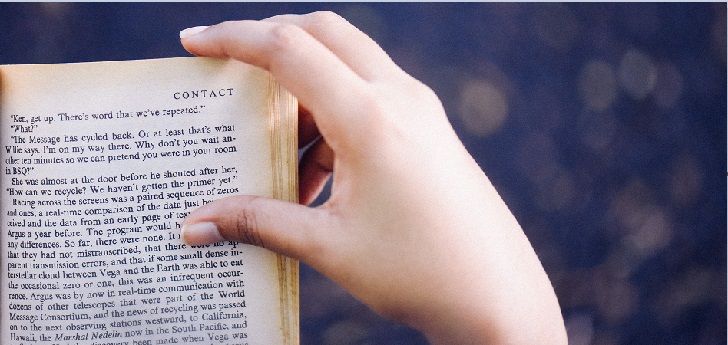 CONTACT
"Ken, get up. There's word that we've repeated."
"What?"
"The Message has cycled back. Or at least that's what
Willie says. I'm on my way there. Why don't you wait an-
other ten minutes so we can pretend you were in your room
in BSQ?"
She was almost at the door before he shouted after her,
"How can we recycle? We haven't gotten the primer yet."
Racing across the screens was a paired sequence of zeros
and ones, a real-time comparison of the data just be
ceived and the data from an early page of tex
Argus a year before. The program would h
any differences. So far, there were none. It
that they had not mistranscribed, that there were no ap-
parent transmission errors, and that if some small dense in-
terstellar cloud between Vega and the Earth was able to eat
the occasional zero or one, this was an infrequent occur-
rence. Argus was by now in real-time communication with
dozens of other telescopes that were part of the World
Message Consortium, and the news of recycling was passed
on to the next observing stations westward, to California,
Hawaii, the Marshal Nedelin now in the South Pacific, and
been made when Vega was